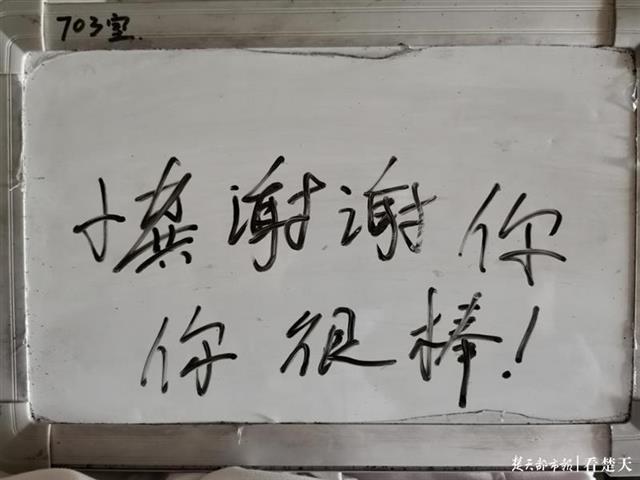 703室.
小龚谢谢你
你很棒!
楚天都市报|看楚天